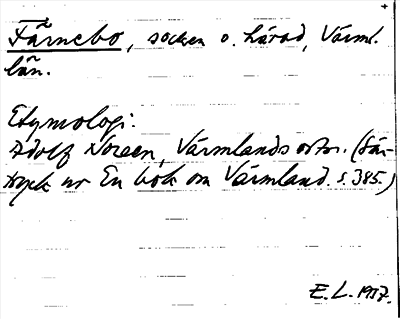 Färnebo, socken o. härad, Värml.
län.
Etymologi.
Adolf Noreen, Värmlands ortn. (Sär-
tryck ur En bok om Värmland. s. 385.)
E. L. 1917.